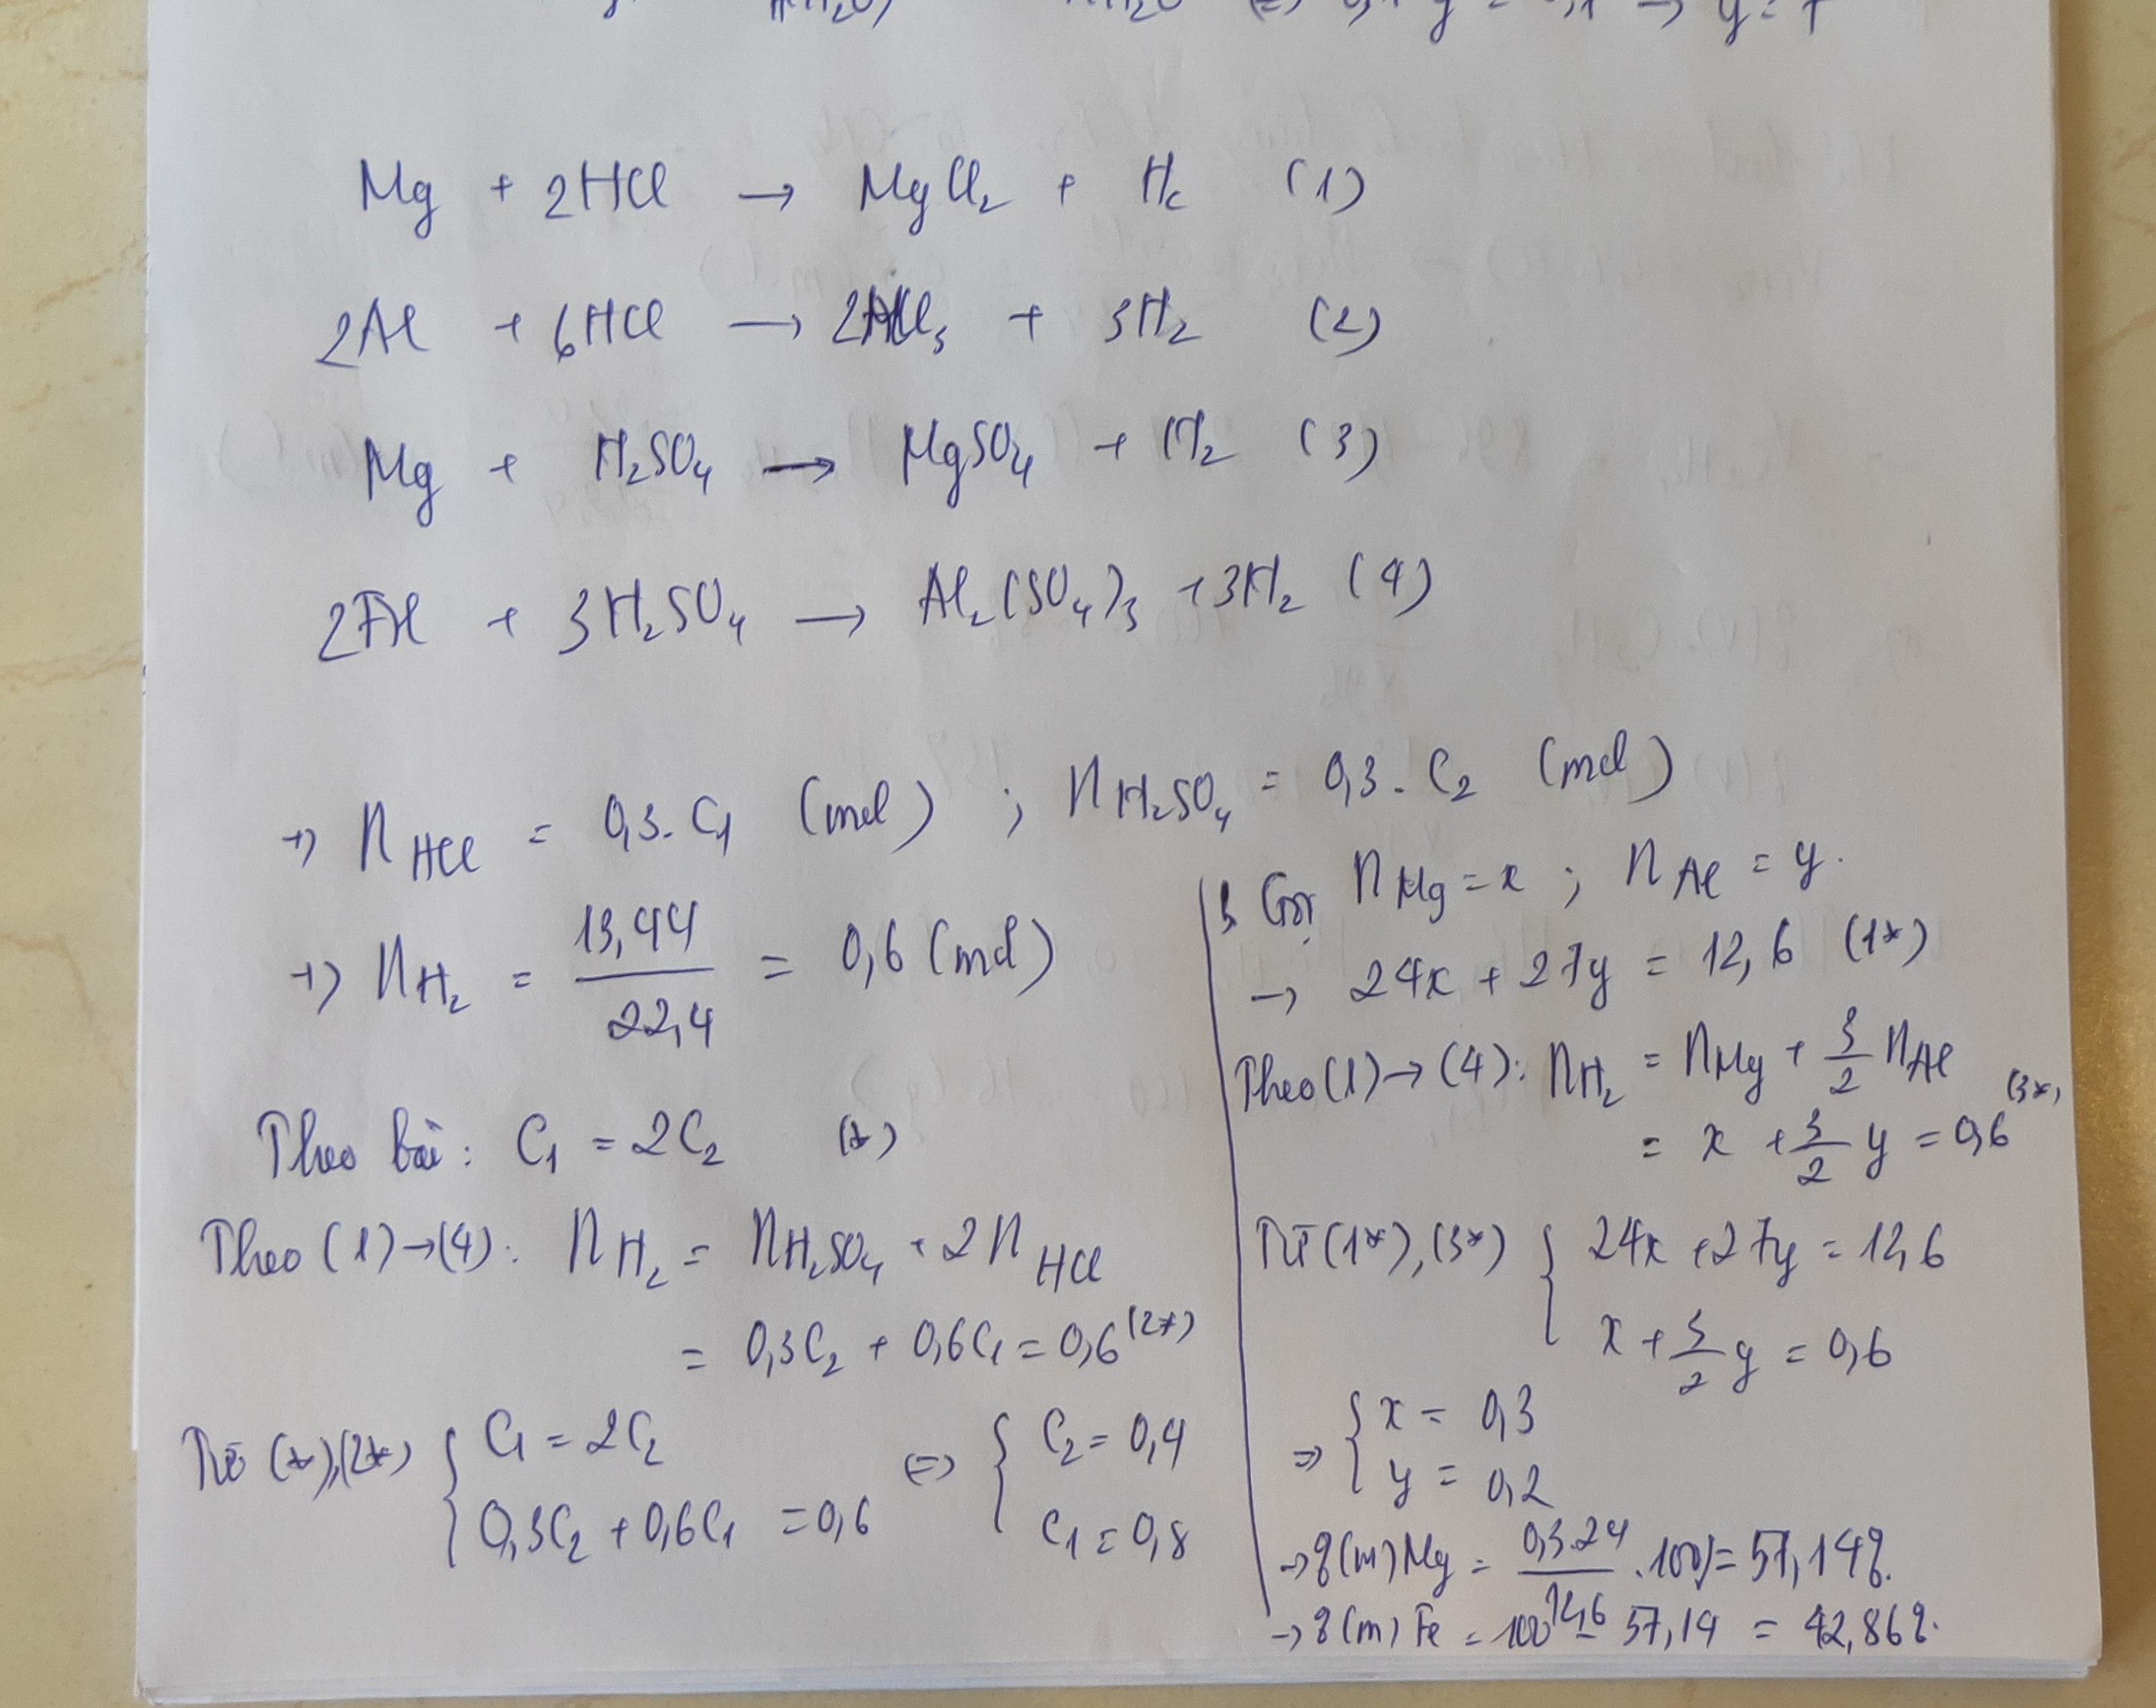 Mg + 2HCl → MgCl₂ + H₂ (1)
2Al + 6HCl → 2AlCl₃ + 3H₂ (2)
Mg + H₂SO₄ → MgSO₄ + H₂ (3)
2Al + 3H₂SO₄ → Al₂(SO₄)₃ + 3H₂ (4)
+) n HCl = 0,3. C₁ (mol) ; n H₂SO₄ = 0,3. C₂ (mol)
+) n H₂ = 13,44 / 22,4 = 0,6 (mol)
Theo bài: C₁ = 2C₂ (*)
Theo (1)→(4): n H₂ = n H₂SO₄ + 2 n HCl
= 0,3C₂ + 0,6C₁ = 0,6 (2*)
Từ (*),(2*) { C₁ = 2C₂
0,3C₂ + 0,6C₁ = 0,6
⇔ { C₂ = 0,4
C₁ = 0,8
Gọi n Mg = x ; n Al = y.
→ 24x + 27y = 12,6 (1*)
Theo (1)→(4): n H₂ = n Mg + 3/2 n Al
= x + 3/2 y = 0,6 (3*)
Từ (1*),(3*) { 24x + 27y = 12,6
x + 3/2 y = 0,6
⇒ { x = 0,3
y = 0,2
→ %(m) Mg = 0,3.24 / 12,6 .100% = 57,14%.
→ %(m) Fe = 100 - 57,14 = 42,86%.